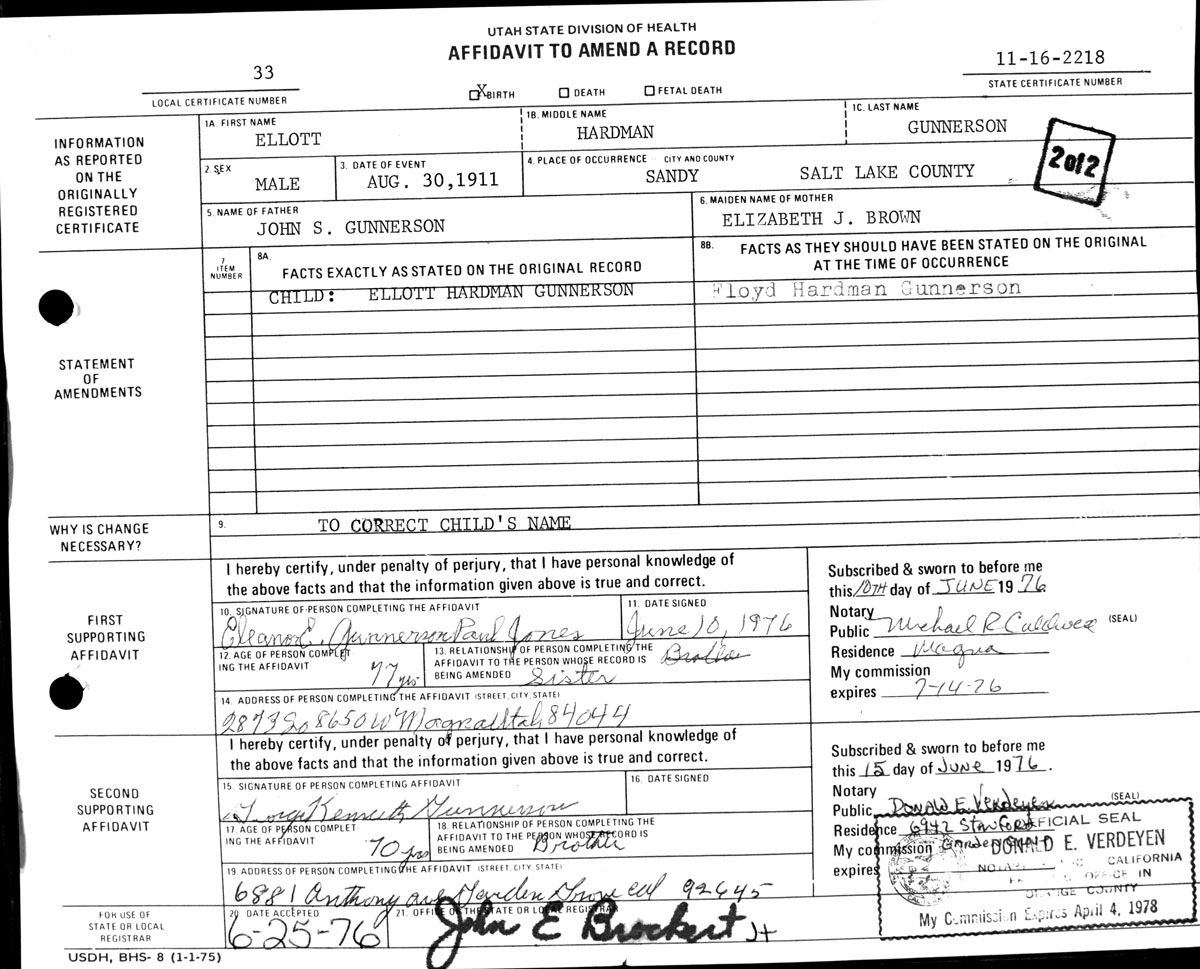 UTAH STATE DIVISION OF HEALTH
AFFIDAVIT TO AMEND A RECORD
33
LOCAL CERTIFICATE NUMBER
X BIRTH DEATH FETAL DEATH
11-16-2218
STATE CERTIFICATE NUMBER
INFORMATION
AS REPORTED
ON THE
ORIGINALLY
REGISTERED
CERTIFICATE
1A. FIRST NAME
ELLOTT
1B. MIDDLE NAME
HARDMAN
1C. LAST NAME
GUNNERSON
2. SEX
MALE
3. DATE OF EVENT
AUG. 30,1911
4. PLACE OF OCCURRENCE - CITY AND COUNTY
SANDY SALT LAKE COUNTY
2 of 2
5. NAME OF FATHER
JOHN S. GUNNERSON
6. MAIDEN NAME OF MOTHER
ELIZABETH J. BROWN
STATEMENT
OF
AMENDMENTS
7
ITEM
NUMBER
8A.
FACTS EXACTLY AS STATED ON THE ORIGINAL RECORD
8B. FACTS AS THEY SHOULD HAVE BEEN STATED ON THE ORIGINAL
AT THE TIME OF OCCURRENCE
CHILD: ELLOTT HARDMAN GUNNERSON
Floyd Hardman Gunnerson
WHY IS CHANGE
NECESSARY?
9. TO CORRECT CHILD'S NAME
FIRST
SUPPORTING
AFFIDAVIT
I hereby certify, under penalty of perjury, that I have personal knowledge of
the above facts and that the information given above is true and correct.
10. SIGNATURE OF PERSON COMPLETING THE AFFIDAVIT
Eleanor E. Gunnerson Paul Jones
11. DATE SIGNED
June 10, 1976
12. AGE OF PERSON COMPLET
ING THE AFFIDAVIT
77 yrs
13. RELATIONSHIP OF PERSON COMPLETING THE
AFFIDAVIT TO THE PERSON WHOSE RECORD IS
BEING AMENDED
Brother
Sister
14. ADDRESS OF PERSON COMPLETING THE AFFIDAVIT (STREET, CITY, STATE)
2873 So 8650 W Magna Utah 84044
Subscribed & sworn to before me
this 10TH day of JUNE 1976
Notary
Public Michael R Caldwell (SEAL)
Residence Magna
My commission
expires 7-14-76
SECOND
SUPPORTING
AFFIDAVIT
I hereby certify, under penalty of perjury, that I have personal knowledge of
the above facts and that the information given above is true and correct.
15. SIGNATURE OF PERSON COMPLETING AFFIDAVIT
George Kenneth Gunnerson
16. DATE SIGNED
17. AGE OF PERSON COMPLET
ING THE AFFIDAVIT
70 yrs
18. RELATIONSHIP OF PERSON COMPLETING THE
AFFIDAVIT TO THE PERSON WHOSE RECORD IS
BEING AMENDED
Brother
19. ADDRESS OF PERSON COMPLETING THE AFFIDAVIT (STREET, CITY, STATE)
6881 Anthony ave Garden Grove cal 92645
Subscribed & sworn to before me
this 15 day of JUNE 1976.
Notary
Public DONALD E. VERDEYEN (SEAL)
Residence 6942 STANFORD
My commission Garden
expires
OFFICIAL SEAL
DONALD E. VERDEYEN
CALIFORNIA
OFFICE IN
ORANGE COUNTY
My Commission Expires April 4, 1978
FOR USE OF
STATE OR LOCAL
REGISTRAR
20. DATE ACCEPTED
6-25-76
21. OFFICE OF THE STATE OR LOCAL REGISTRAR
John E Brockert
USDH, BHS- 8 (1-1-75)